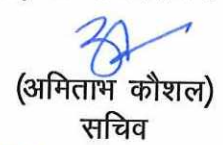 (अमिताभ कौशल)
सचिव